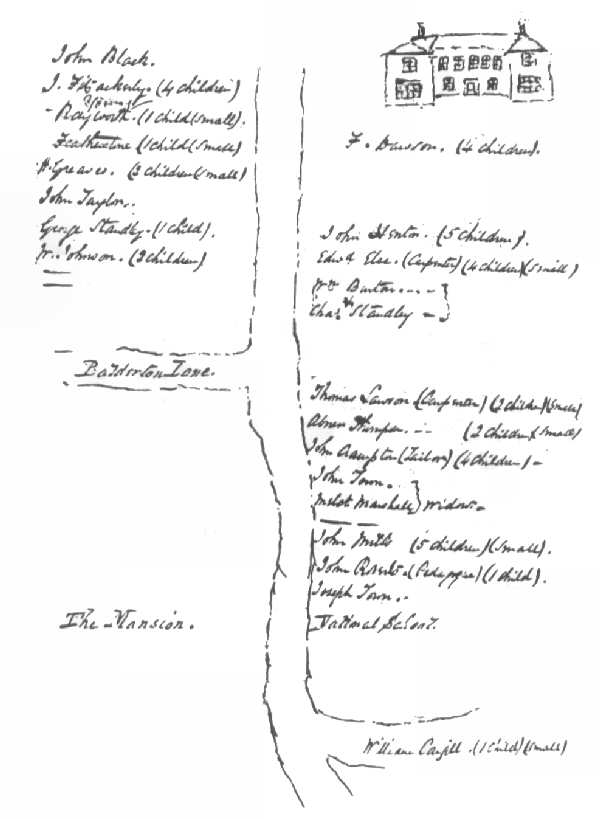 John Black.
J. (4 children)
- Rayworth. (1 child (small).
Featherstine (1 child (small)
H. Greaves. (3 children (small)
John Taylor..
George Standley. (1 child).
Wm. Johnson. (3 children)
F. Dawson. (4 children).
John Henton. (5 children).
Edwd Else. (Carpenter) (4 children) (small)
Wm Burton
Chas. Standley
Balderton Lane.
Thomas Lawson (Carpenter) (2 children) (small)
Abner (2 children (small)
John Crampton (Tailor) (4 children) -
John Town.
Marshall } Widows
John Mills (5 children) (small).
John (1 child).
Joseph Town..
National School.
The Mansion.
William Cargill. (1 child) (small)